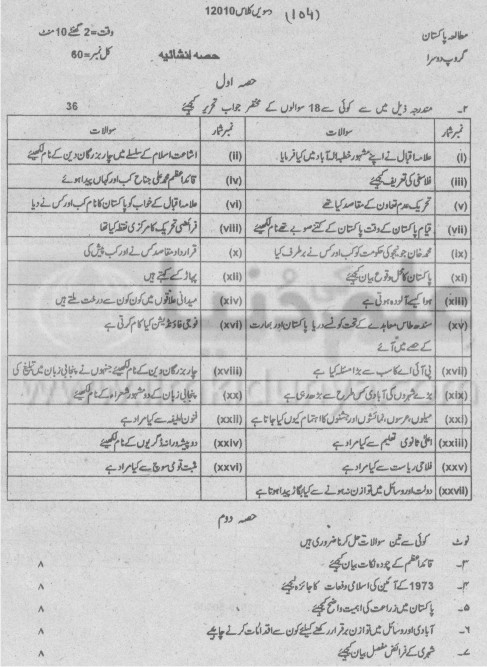 (104) دسویں کلاس 12010
مطالعہ پاکستان وقت=2 گھنٹے 10 منٹ
گروپ دوسرا حصہ انشائیہ کل نمبر=60
حصہ اول
۲۔ مندرجہ ذیل میں سے کوئی سے 18 سوالوں کے مختصر جواب تحریر کیجئے 36
نمبر شمار سوالات نمبر شمار سوالات
(i) علامہ اقبال نے اپنے مشہور خطبہ الہ آباد میں کیا فرمایا (ii) اشاعت اسلام کے سلسلے میں چار بزرگان دین کے نام لکھیئے
(iii) فلاسفی کی تعریف کیجئے (iv) قائداعظم محمد علی جناح کب اور کہاں پیدا ہوئے
(v) تحریک عدم تعاون کے مقاصد کیا تھے (vi) علامہ اقبال کے خواب کو پاکستان کا نام کب اور کس نے دیا
(vii) قیام پاکستان کے وقت پاکستان کے کتنے صوبے تھے نام لکھیئے (viii) فرائضی تحریک کا مرکزی نقطہ کیا تھا
(ix) محمد خان جونیجو کی حکومت کو کب اور کس نے برطرف کیا (x) قرارداد مقاصد کس نے اور کب پیش کی
(xi) پاکستان کا محل وقوع بیان کیجئے (xii) پہاڑ کسے کہتے ہیں
(xiii) ہوا کیسے آلودہ ہوتی ہے (xiv) میدانی علاقوں میں کون کون سے درخت ملتے ہیں
(xv) سندھ طاس معاہدے کے تحت کونسے دریا پاکستان اور بھارت (xvi) فوجی فاؤنڈیشن کیا کام کرتی ہے
کے حصے میں آئے
(xvii) پی آئی اے کا سب سے بڑا مسئلہ کیا ہے (xviii) چار بزرگان دین کے نام لکھیئے جنہوں نے پنجابی زبان میں تبلیغ کی
(xix) بڑے شہروں کی آبادی کس طرح سے بڑھ رہی ہے (xx) پنجابی زبان کے دو مشہور شعراء کے نام لکھیئے
(xxi) میلوں، عرسوں، نمائشوں اور جشنوں کا اہتمام کیوں کیا جاتا ہے (xxii) فنون لطیفہ سے کیا مراد ہے
(xxiii) اعلیٰ ثانوی تعلیم سے کیا مراد ہے (xxiv) دو پیشہ ورانہ ڈگریوں کے نام لکھیئے
(xxv) فلاحی ریاست سے کیا مراد ہے (xxvi) مثبت قومی سوچ سے کیا مراد ہے
(xxvii) دولت اور وسائل میں توازن نہ ہونے سے کیا بگاڑ پیدا ہوتا ہے
حصہ دوم
نوٹ کوئی سے تین سوالات حل کرنا ضروری ہیں
۳۔ قائداعظم کے چودہ نکات بیان کیجئے ۸
۴۔ 1973 کے آئین کی اسلامی دفعات کا جائزہ لیجئے ۸
۵۔ پاکستان میں زراعت کی اہمیت واضح کیجئے ۸
۶۔ آبادی اور وسائل میں توازن برقرار رکھنے کیلئے کون سے اقدامات کرنے چاہیے ۸
۷۔ شہری کے فرائض مفصل بیان کیجئے ۸